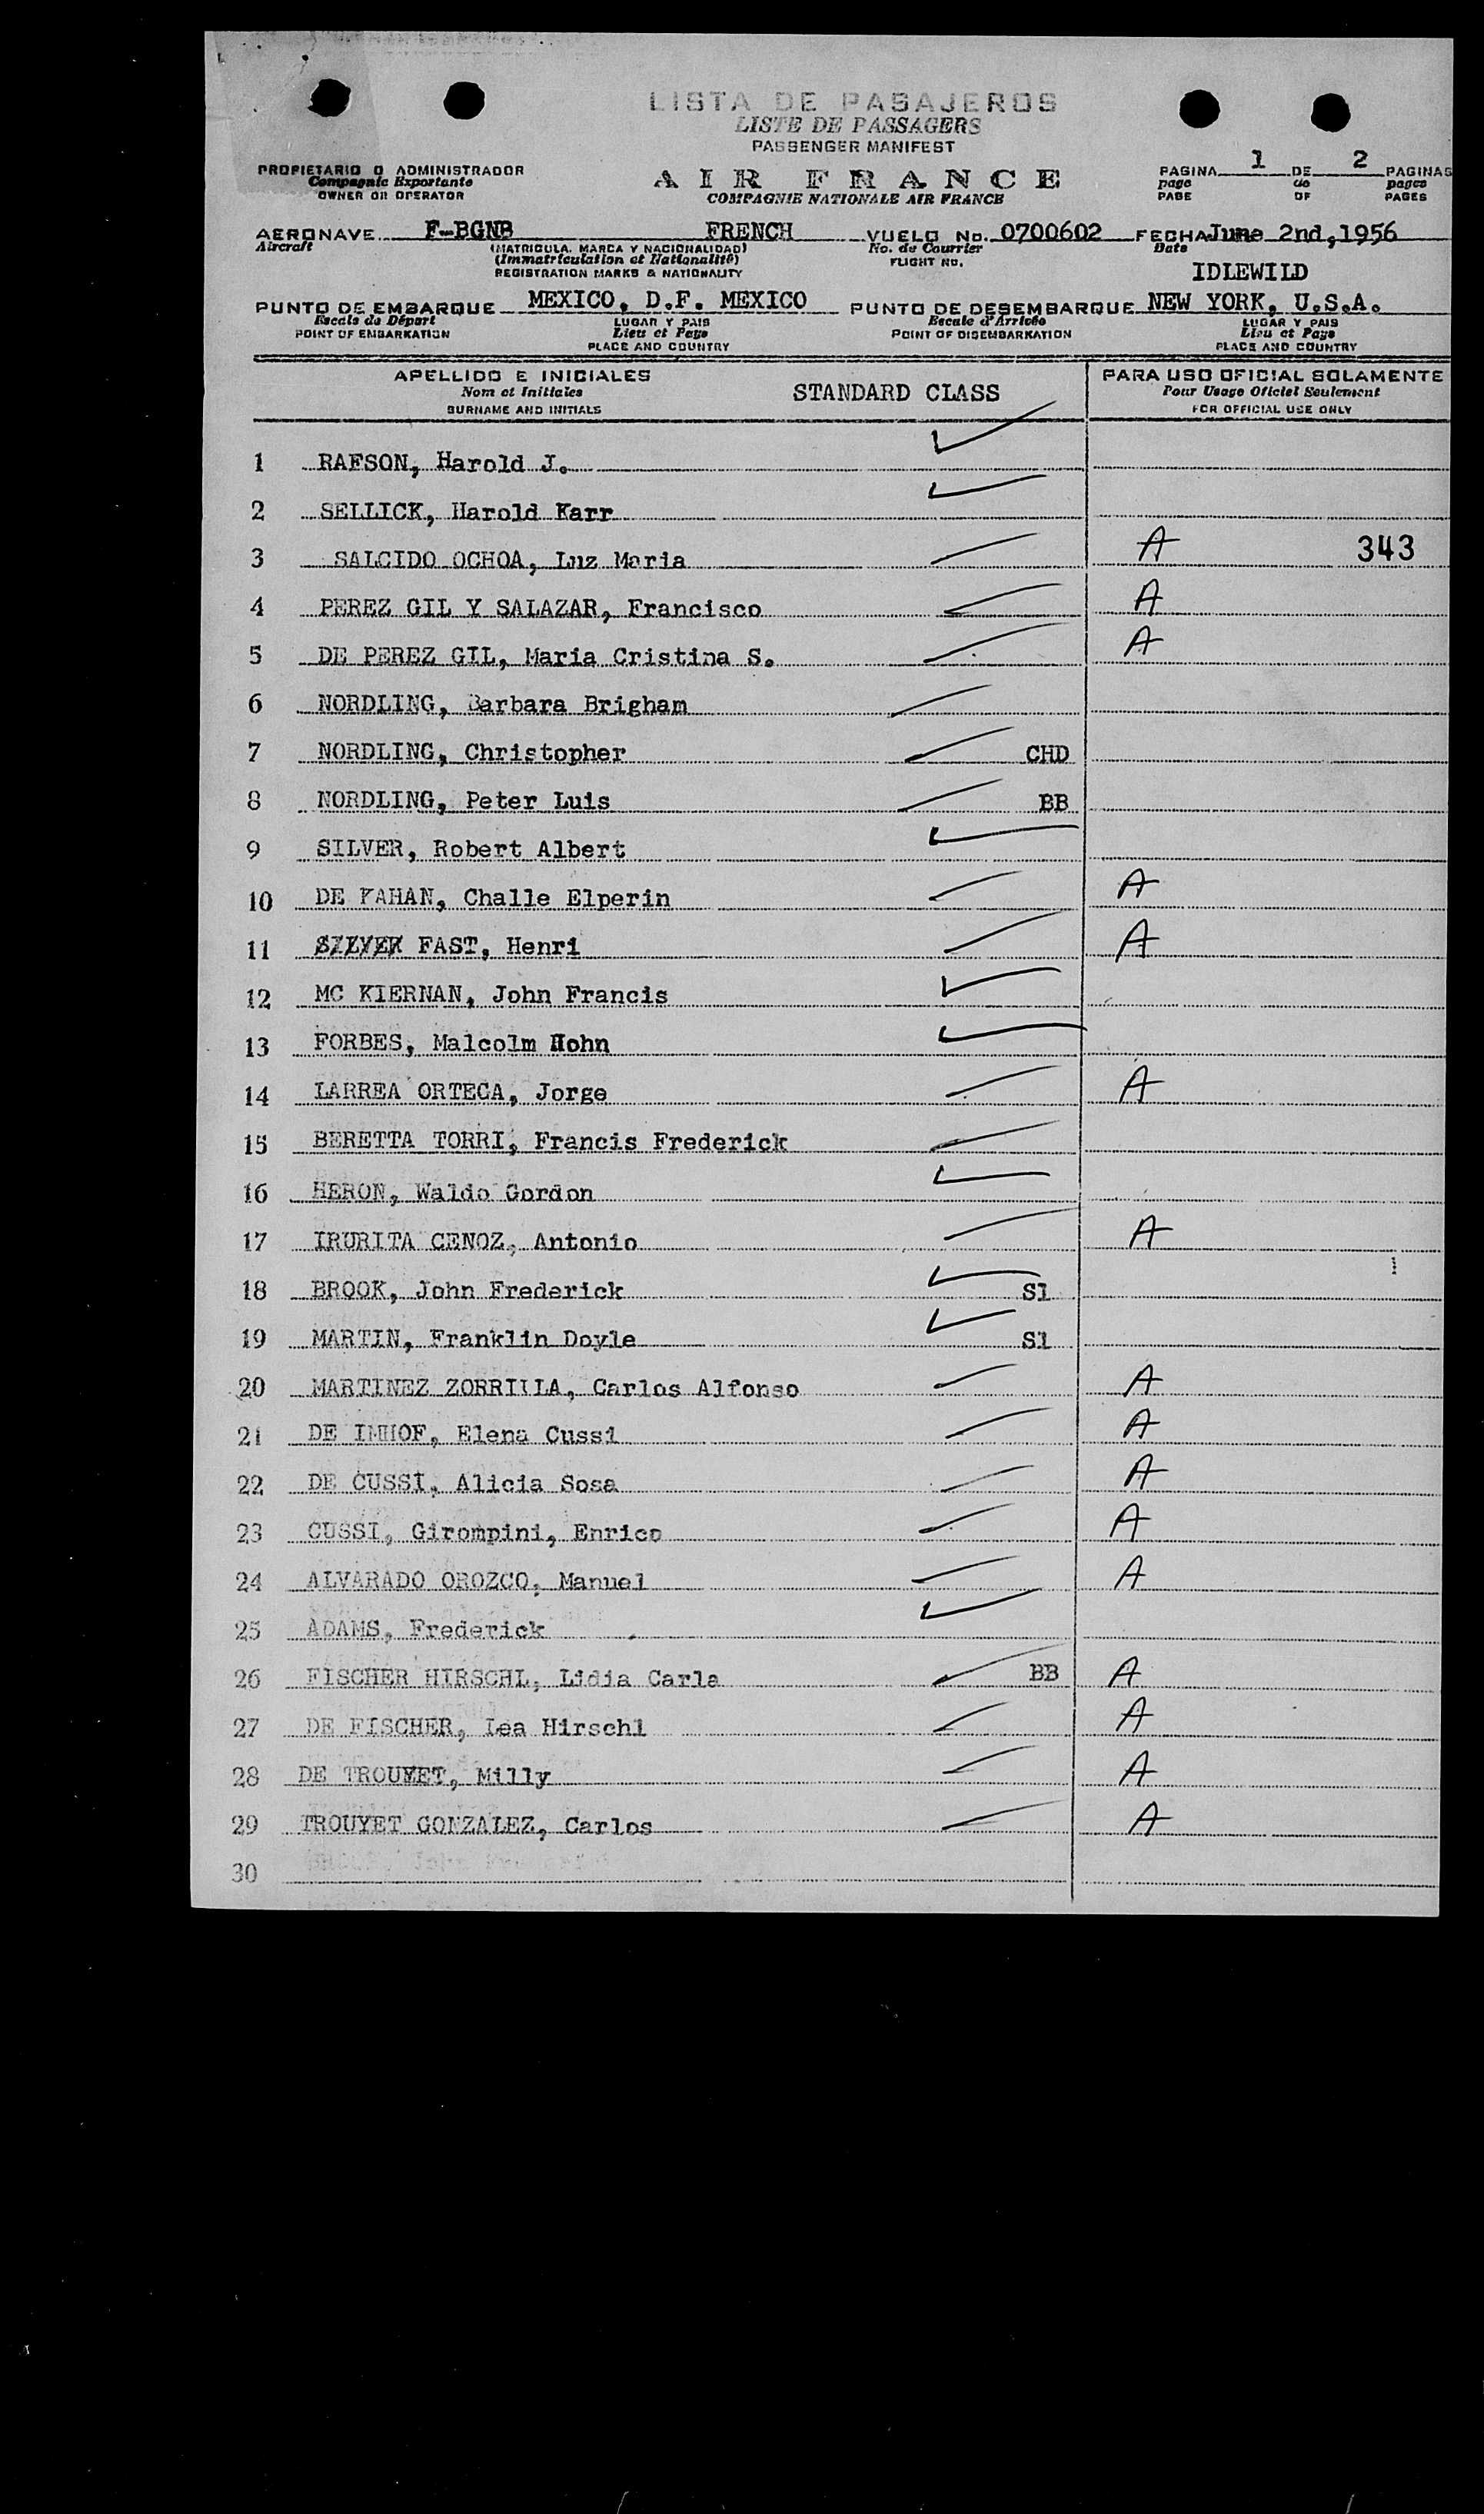 LISTA DE PASAJEROS
LISTE DE PASSAGERS
PASSENGER MANIFEST
PROPIETARIO O ADMINISTRADOR
Compagnie Exportante
OWNER OR OPERATOR
AIR FRANCE
COMPAGNIE NATIONALE AIR FRANCE
PAGINA 1 DE 2 PAGINAS
page de pages
PAGE OF PAGES
AERONAVE F-BGNB FRENCH VUELO No. 0700602 FECHA June 2nd, 1956
Aircraft (MATRICULA, MARCA Y NACIONALIDAD) No. de Courrier Date
(Immatriculation et Nationalité) FLIGHT NO.
REGISTRATION MARKS & NATIONALITY
IDLEWILD
PUNTO DE EMBARQUE MEXICO, D.F. MEXICO PUNTO DE DESEMBARQUE NEW YORK, U.S.A.
Escale de Départ LUGAR Y PAIS Escale d'Arrivée LUGAR Y PAIS
POINT OF EMBARKATION Lieu et Pays POINT OF DISEMBARKATION Lieu et Pays
PLACE AND COUNTRY PLACE AND COUNTRY
APELLIDO E INICIALES STANDARD CLASS PARA USO OFICIAL SOLAMENTE
Nom et Initiales Pour Usage Oficiel Seulement
SURNAME AND INITIALS FOR OFFICIAL USE ONLY
1 RAFSON, Harold J.
2 SELLICK, Harold Karr
3 SALCIDO OCHOA, Luz Maria A 343
4 PEREZ GIL Y SALAZAR, Francisco A
5 DE PEREZ GIL, Maria Cristina S. A
6 NORDLING, Barbara Brigham
7 NORDLING, Christopher CHD
8 NORDLING, Peter Luis BB
9 SILVER, Robert Albert
10 DE KAHAN, Challe Elperin A
11 SILVER FAST, Henri A
12 MC KIERNAN, John Francis
13 FORBES, Malcolm Hohn
14 LARREA ORTEGA, Jorge A
15 BERETTA TORRI, Francis Frederick
16 HERON, Waldo Gordon
17 IRURITA CENOZ, Antonio A
18 BROOK, John Frederick Sl
19 MARTIN, Franklin Doyle Sl
20 MARTINEZ ZORRILLA, Carlos Alfonso A
21 DE IMHOF, Elena Cussi A
22 DE CUSSI, Alicia Sosa A
23 CUSSI, Girompini, Enrico A
24 ALVARADO OROZCO, Manuel A
25 ADAMS, Frederick
26 FISCHER HIRSCHL, Lidia Carla BB A
27 DE FISCHER, Lea Hirschl A
28 DE TROUYET, Milly A
29 TROUYET GONZALEZ, Carlos A
30